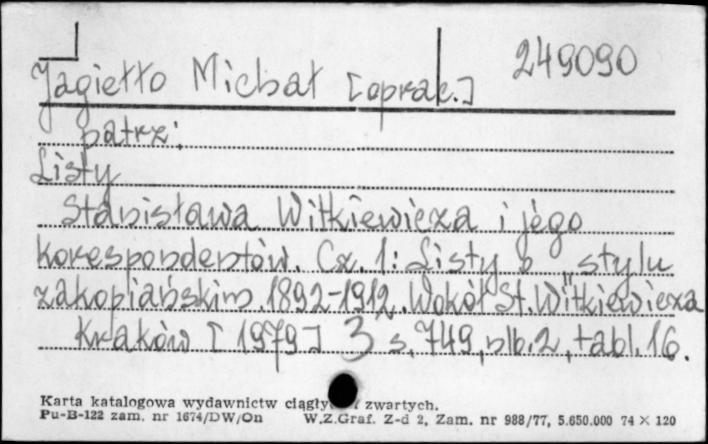 Jagiełło Michał [oprac.] 249090
patrz:
Listy
Stanisława Witkiewicza i jego
korespondentów. Cz. 1: Listy o „stylu
zakopiańskim. 1892-1912. Wokół St. Witkiewicza
Kraków [1979] 3 s. 749, nlb. 2, tabl. 16.
Karta katalogowa wydawnictw ciągły i zwartych.
Pu-B-122 zam. nr 1674/DW/On W.Z.Graf. Z-d 2, Zam. nr 988/77, 5.650.000 74 × 120